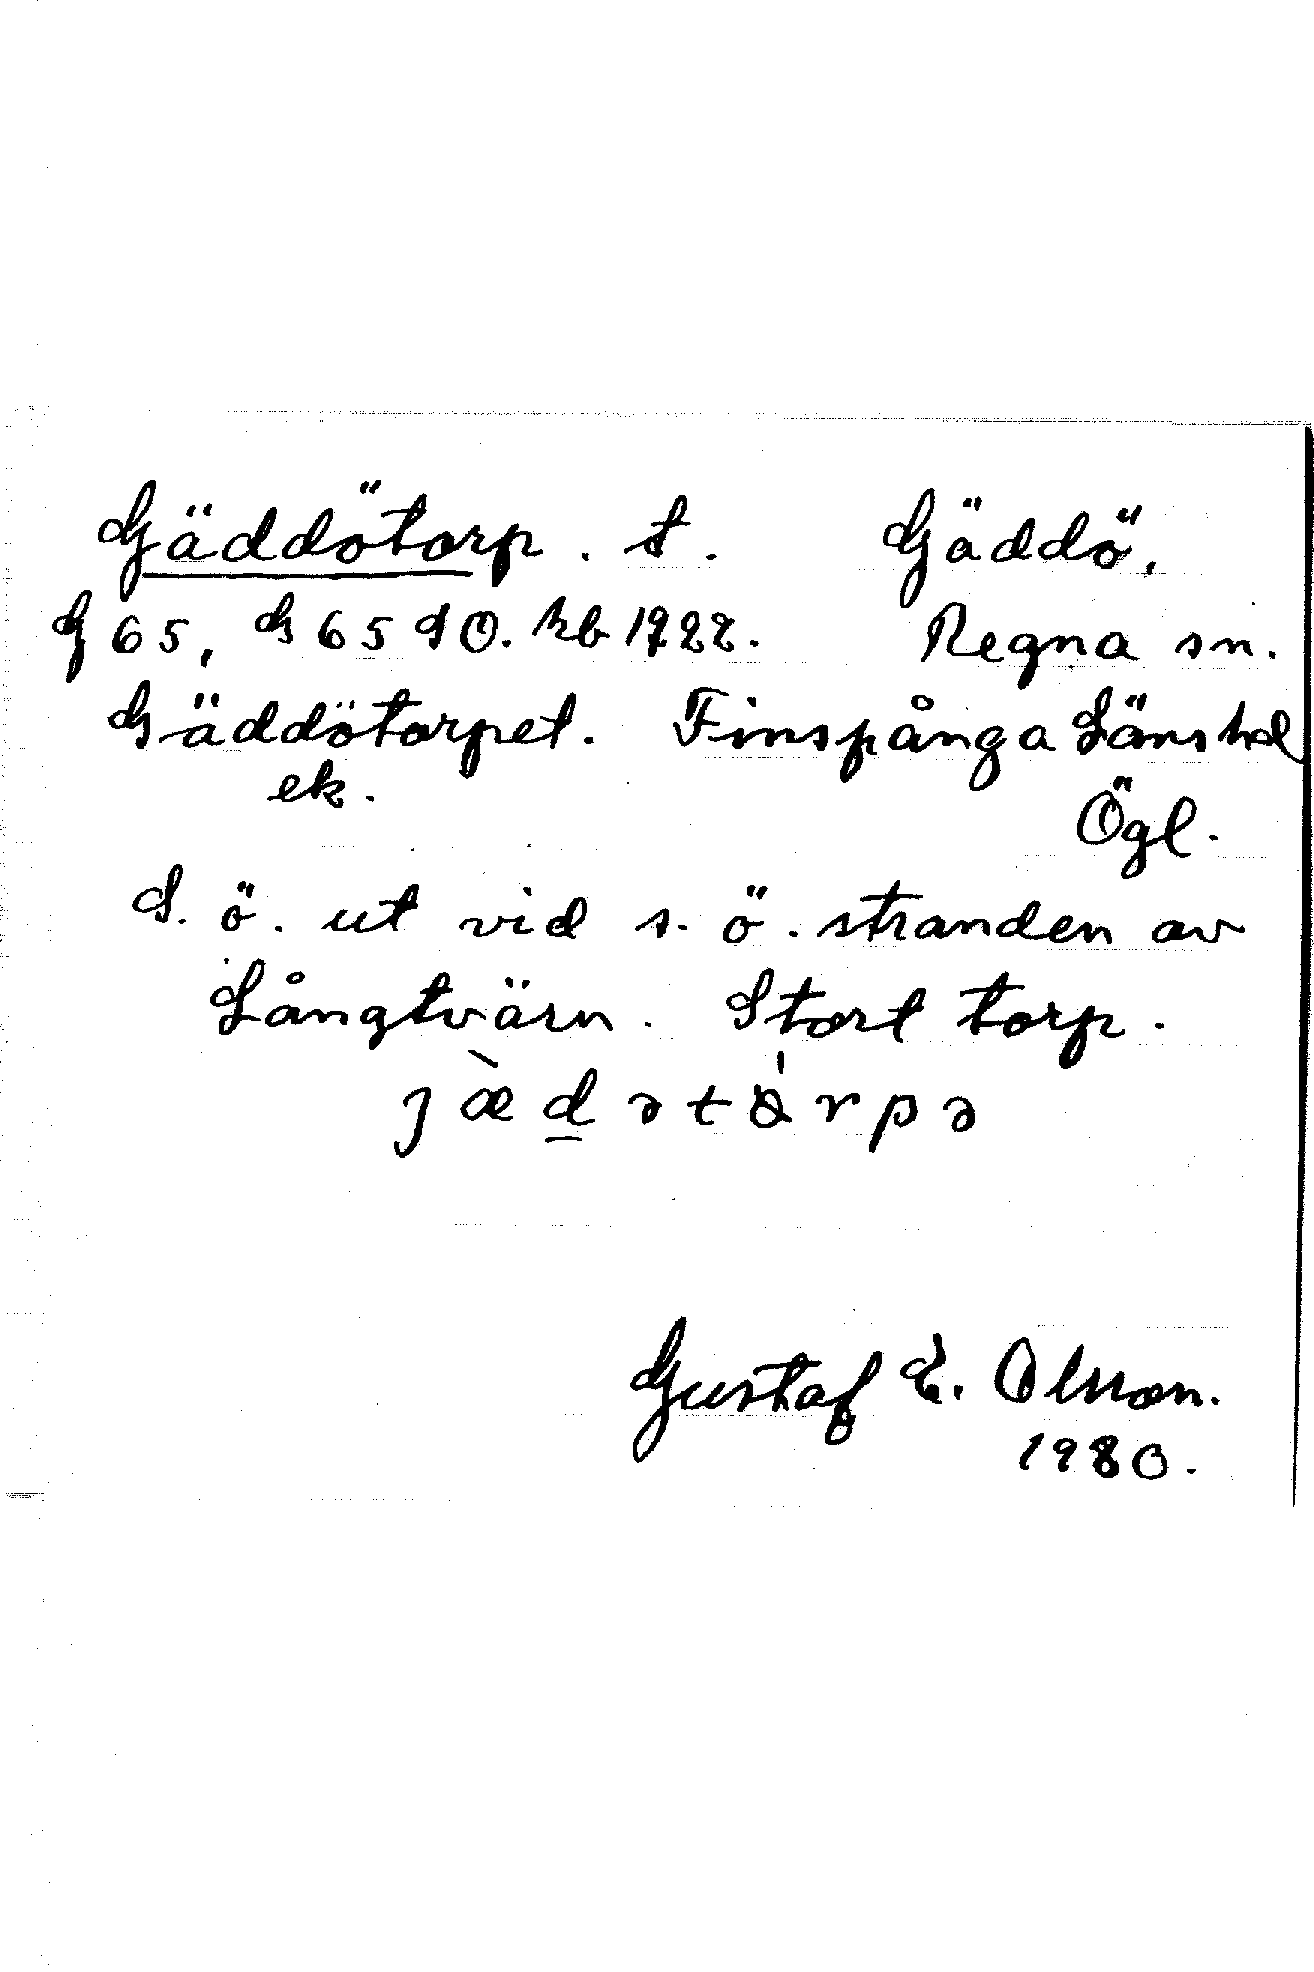 Gäddötorp. t. Gäddö,
G 65, G 65 SO. kb 1922. Regna sn.
Gäddötorpet. Finspånga Läns hd
ek. Ögl.
S. ö. ut vid s. ö. stranden av
Långtvärn. Stort torp.
jæ̀dətòrpə
Gustaf E. Olsson.
1980.